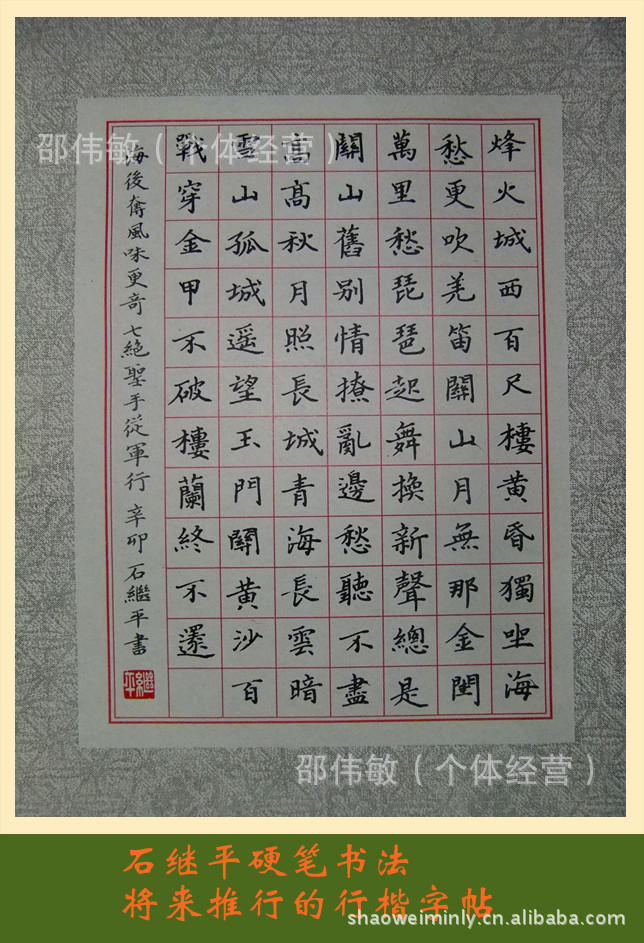 烽火城西百尺樓黃昏獨坐海
愁更吹羌笛關山月無那金閨
萬里愁琵琶起舞換新聲總是
關山舊別情撩亂邊愁聽不盡
高高秋月照長城青海長雲暗
雪山孤城遥望玉門關黃沙百
戰穿金甲不破樓蘭終不還
海後奪風味更奇 七絕聖手從軍行 辛卯 石繼平書
繼平
邵伟敏（个体经营）
邵伟敏（个体经营）
石继平硬笔书法
将来推行的行楷字帖
shaoweiminly.cn.alibaba.com